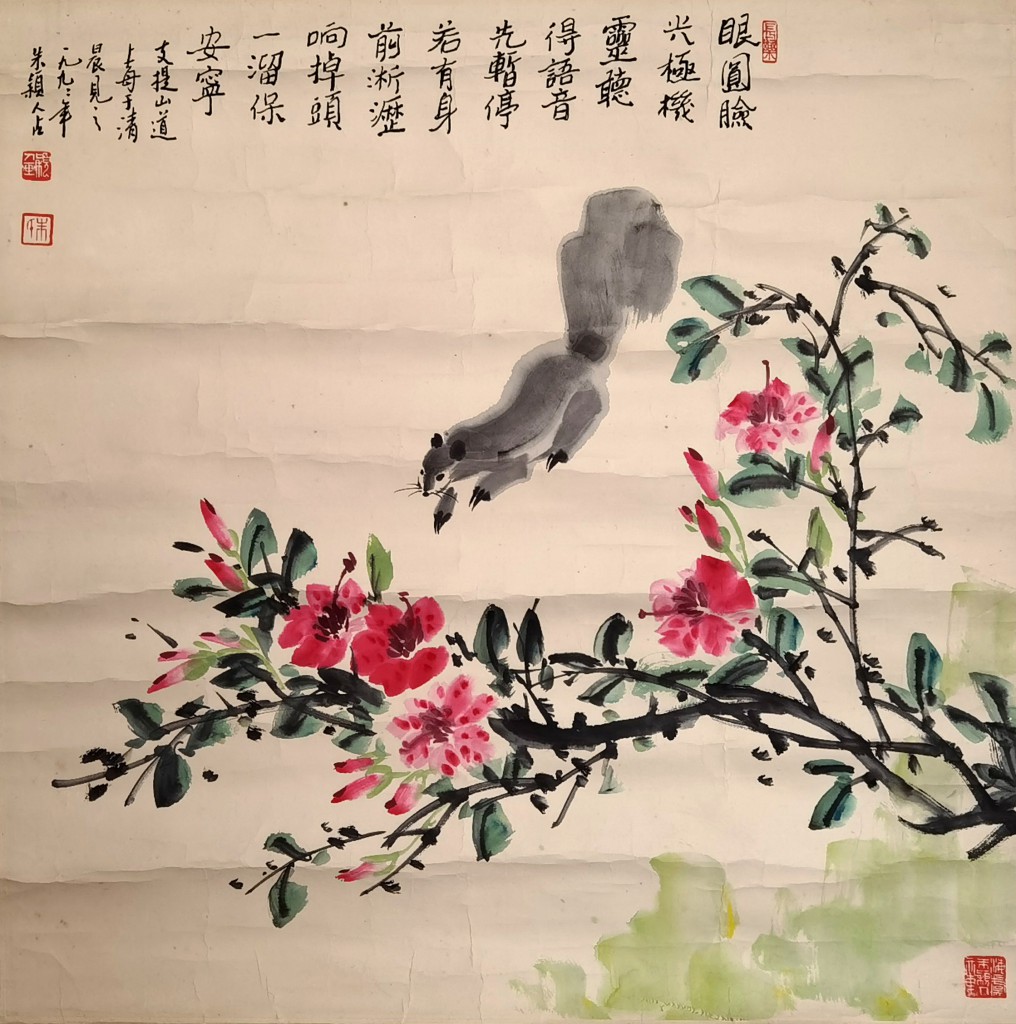 眼圓臉
尖極機
靈聽
得語音
先暫停
若有身
前淅瀝
响掉頭
一溜保
安寧
支提山道
上每于清
晨見之
一九九二年
朱穎人占